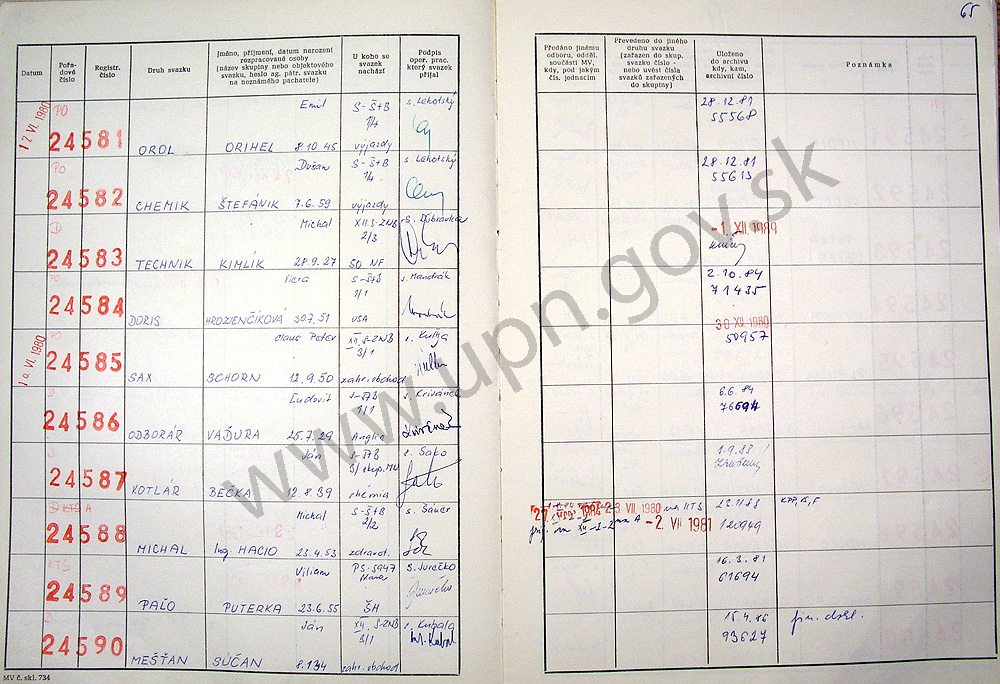 65
Datum
Pořa-
dové
číslo
Registr.
číslo
Druh svazku
Jméno, příjmení, datum narození
rozpracované osoby
(název skupiny nebo objektového
svazku, heslo ag. pátr. svazku
na neznámého pachatele)
U koho se
svazek
nachází
Podpis
oper. prac.
který svazek
přijal
Předáno jinému
odboru, odděl.
součásti MV,
kdy, pod jakým
čís. jednacím
Převedeno do jiného
druhu svazku
(zařazen do skup.
svazku číslo -
nebo uvést čísla
svazků zařazených
do skupiny)
Uloženo
do archivu
kdy, kam,
archivní číslo
Poznámka
PO
24581
OROL
Emil
ORIHEL 8.10.45
S-Š+B
1/4
výjazdy
s. Lehotský
28.12.81
55568
PO
24582
CHEMIK
Dušan
ŠTEFÁNIK 7.6.59
S-Š+B
1/4
výjazdy
s. Lehotský
28.12.81
55613
D
24583
TECHNIK
Michal
KIMLIK 28.9.27
XII.S-ZNB
2/3
ŠO NF
s. Dúbravka
-1. XII. 1989
24584
DORIS
Viera
HROZIENČÍKOVÁ 30.7.51
S-Š+B
1/1
USA
s. Mandrák
2.10.84
71435
24585
SAX
Claus Peter
SCHORN 12.9.50
XII. S-ZNB
3/1
zahr. obchod
30. XII. 1980
50957
24586
ODBORÁR
Ľudovít
VAĎURA 25.7.29
S-Š+B
1/1
Anglie
s. Krivánek
6.6.84
24587
KOTLÁR
Ján
BEČKA 12.8.39
S-Š+B
chémia
s. Sako
1.9.88
D KTS A
24588
MICHAL
Michal
Ing. HACIO 23.4.53
S-Š+B
2/2
zdravot.
s. Sauer
VII. 1980 na KTS
na A -2. VII 1981
120949
KTS
24589
PAĽO
Viliam
PUTERKA 23.6.55
PS-5947
ŠH
s. Jurečko
16.3.81
61694
D
24590
MEŠŤAN
Ján
SÚČAN 8.1.34
XII. S-ZNB
3/1
zahr. obchod
15.4.86
93627
MV č. skl. 734
www.upn.gov.sk